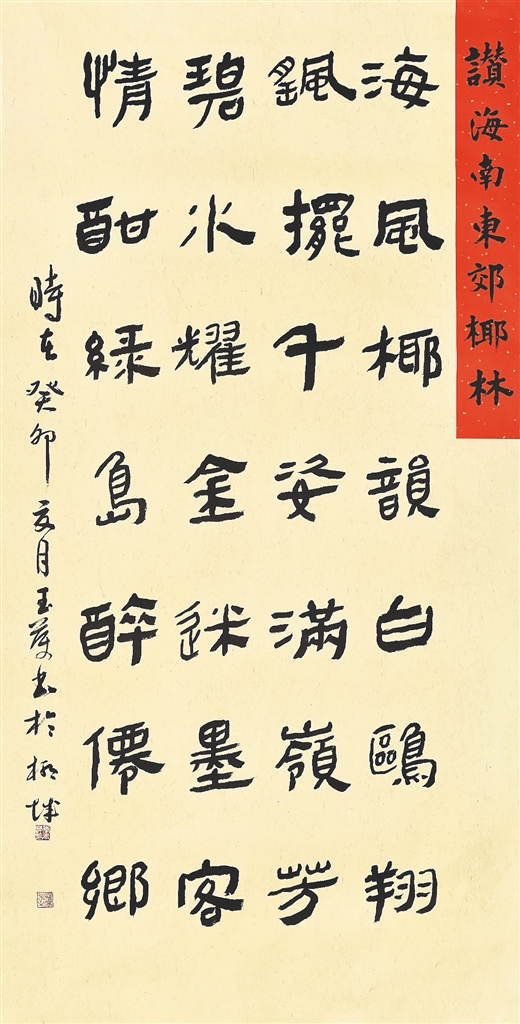 讚海南東郊椰林
海風椰韻白鷗翔
颻擺千姿滿嶺芳
碧水耀金迷墨客
情酣綠島醉僊鄉
時在癸卯亥月玉書於椰城